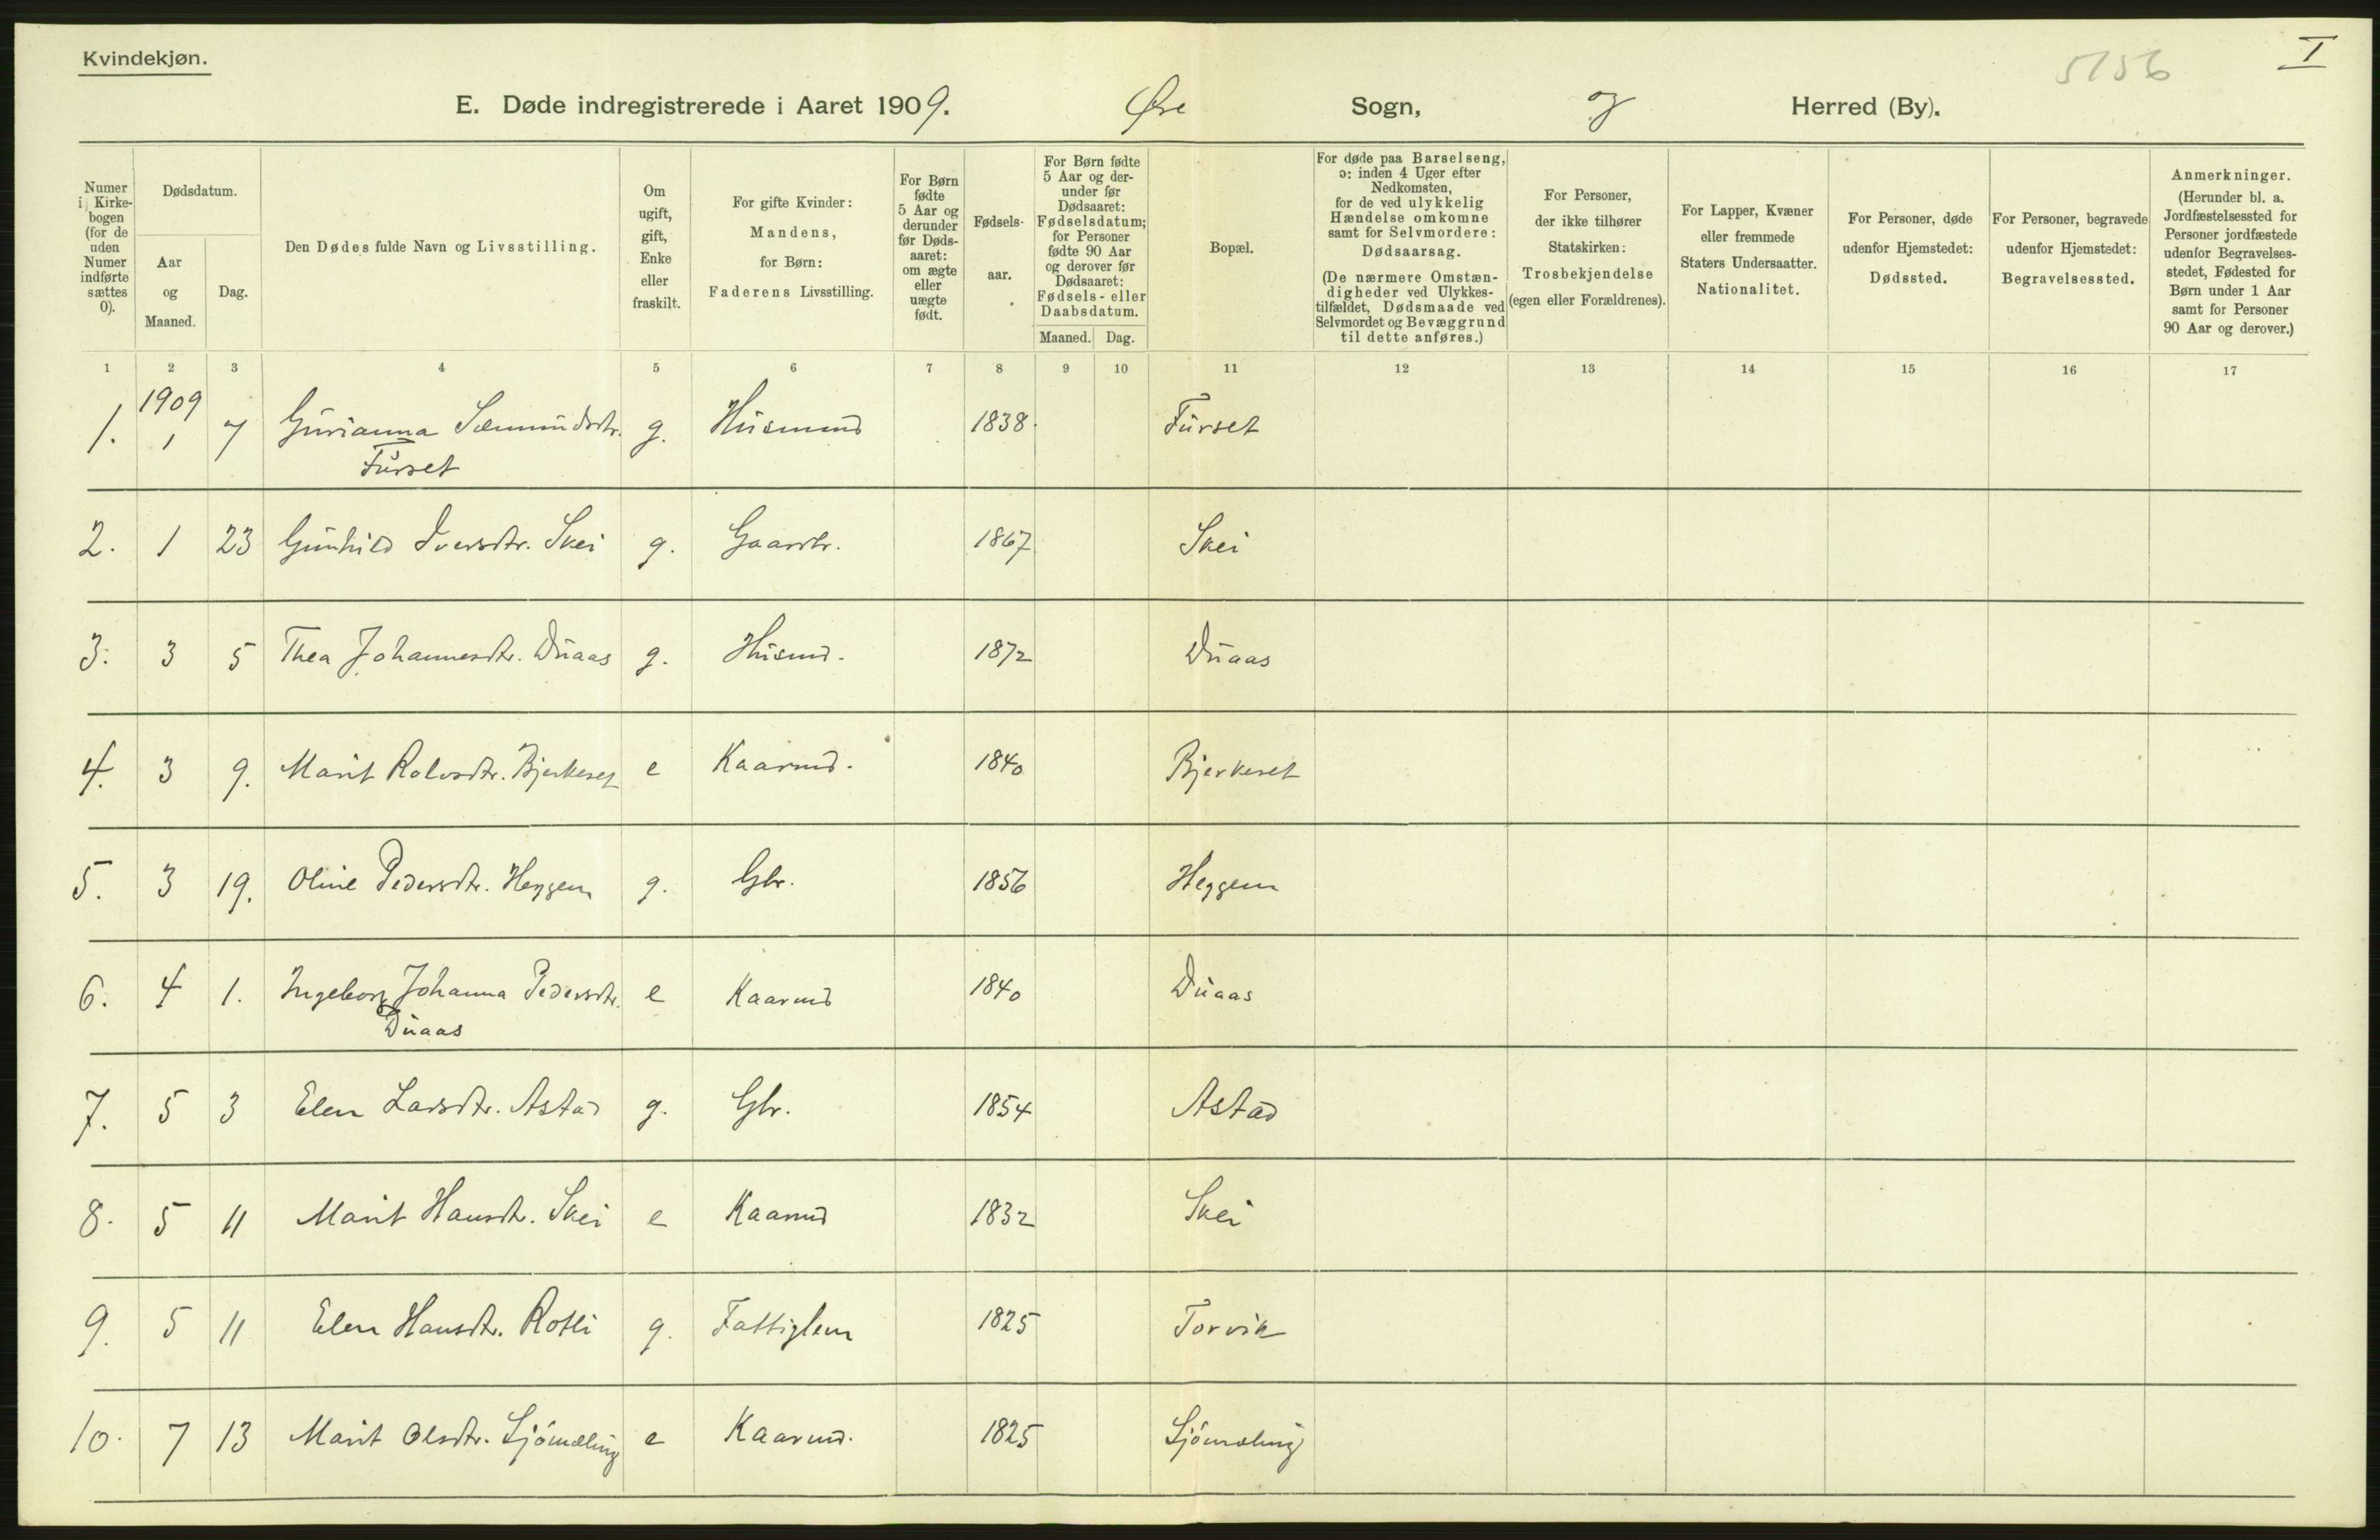 Kvindekjøn.
5156
I
E. Døde indregistrerede i Aaret 1909. Øre Sogn, og Herred (By).
Numer i Kirke-bogen (for de uden Numer indførte sættes 0).
Dødsdatum.
Aar og Maaned.
Dag.
Den Dødes fulde Navn og Livsstilling.
Om ugift, gift, Enke eller fraskilt.
For gifte Kvinder: Mandens, for Børn: Faderens Livsstilling.
For Børn fødte 5 Aar og derunder før Døds-aaret: om ægte eller uægte født.
Fødsels-aar.
For Børn fødte 5 Aar og der-under før Dødsaaret: Fødselsdatum; for Personer fødte 90 Aar og derover før Dødsaaret: Fødsels- eller Daabsdatum.
Maaned. Dag.
Bopæl.
For døde paa Barselseng, ɔ: inden 4 Uger efter Nedkomsten, for de ved ulykkelig Hændelse omkomne samt for Selvmordere: Dødsaarsag.
(De nærmere Omstæn-digheder ved Ulykkes-tilfældet, Dødsmaade ved Selvmordet og Bevæggrund til dette anføres.)
For Personer, der ikke tilhører Statskirken: Trosbekjendelse (egen eller Forældrenes).
For Lapper, Kvæner eller fremmede Staters Undersaatter. Nationalitet.
For Personer, døde udenfor Hjemstedet: Dødssted.
For Personer, begravede udenfor Hjemstedet: Begravelsessted.
Anmerkninger.
(Herunder bl. a. Jordfæstelsessted for Personer jordfæstede udenfor Begravelses-stedet, Fødested for Børn under 1 Aar samt for Personer 90 Aar og derover.)
1 2 3 4 5 6 7 8 9 10 11 12 13 14 15 16 17
1909
1. 1 7 Gurianna Sæmundsdtr. g. Husmand 1838. Furset
Furset
2. 1 23 Gunhild Iversdtr. Skei g. Gaardbr. 1867 Skei
3. 3 5 Thea Johannesdtr. Duaas g. Husmd. 1872 Duaas
4. 3 9. Marit Rolvsdtr. Bjerkeset e Kaarmd. 1840 Bjerkeset
5. 3 19. Oline Pedersdtr. Heggem g. Gbr. 1856 Heggem
6. 4 1. Ingeborg Johanna Pedersdtr. e Kaarmd 1840 Duaas
Duaas
7. 5 3 Elen Larsdtr. Astad g. Gbr. 1854 Astad
8. 5 11 Marit Hansdtr. Skei e Kaarmd 1832 Skei
9. 5 11 Elen Hansdtr. Rotli g. Fattiglem 1825 Torvik
10. 7 13 Marit Olsdtr. Sjømæling e Kaarmd. 1825 Sjømæling